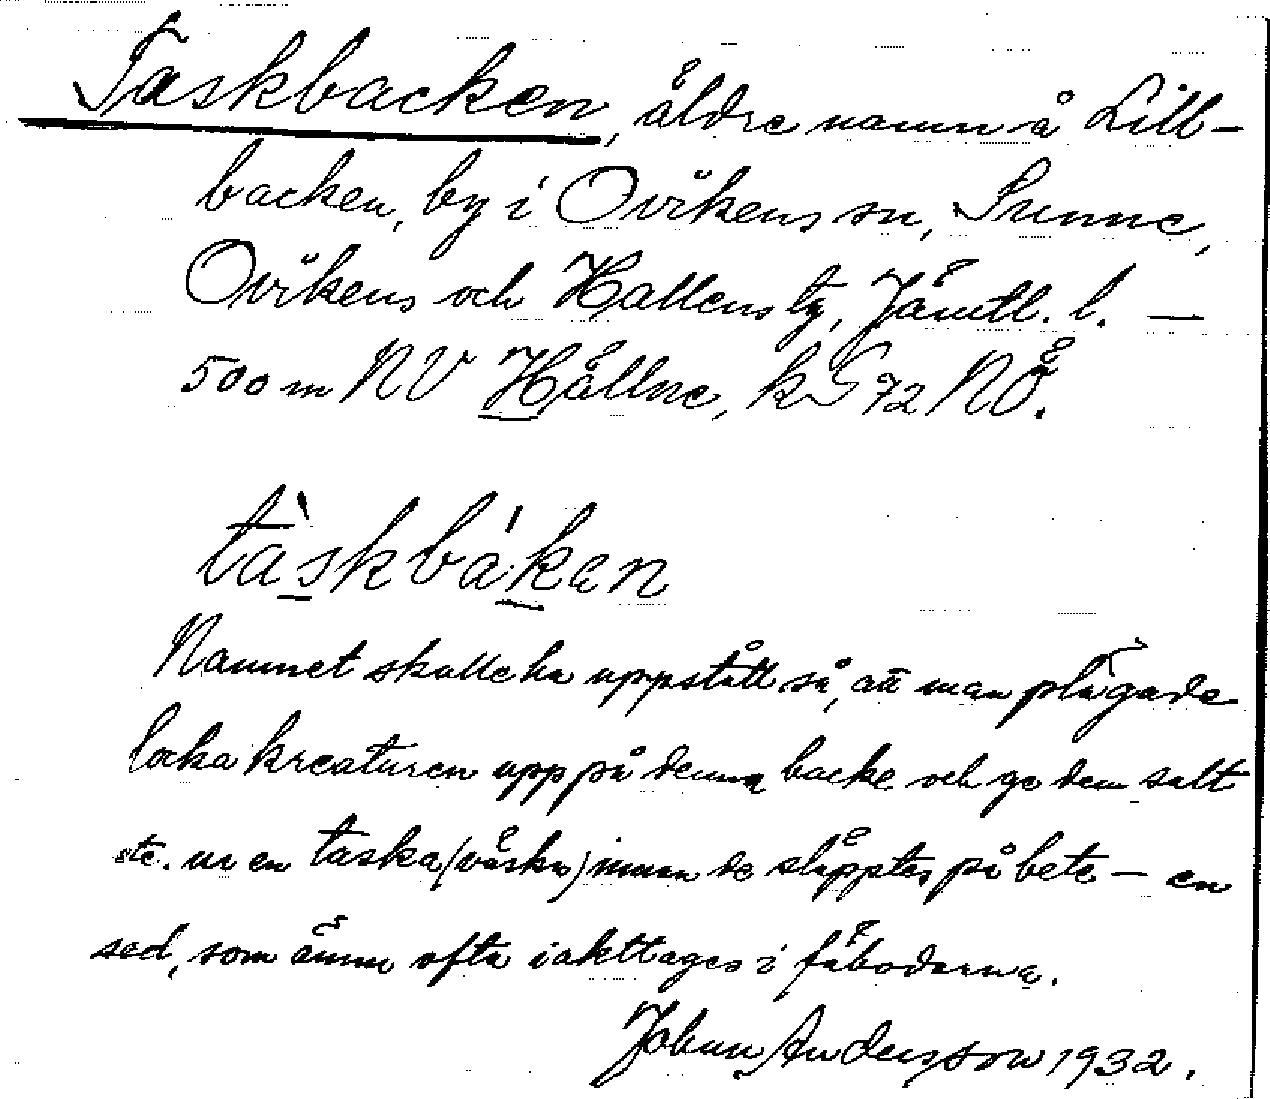 Taskbacken, äldre namn å Lill-
backen, by i Ovikens sn, Sunne,
Ovikens och Hallens tg, Jämtl. l. —
500 m NV Hällne, k G 72 NÖ.
tàskbákan
Namnet skulle ha uppstått så, att man plägade
locka kreaturen upp på denna backe och ge dem salt
etc. ur en taska (väska) innan de släpptes på bete — en
sed, som ännu ofta iakttages i fäbodarna.
Johan Andersson 1932.